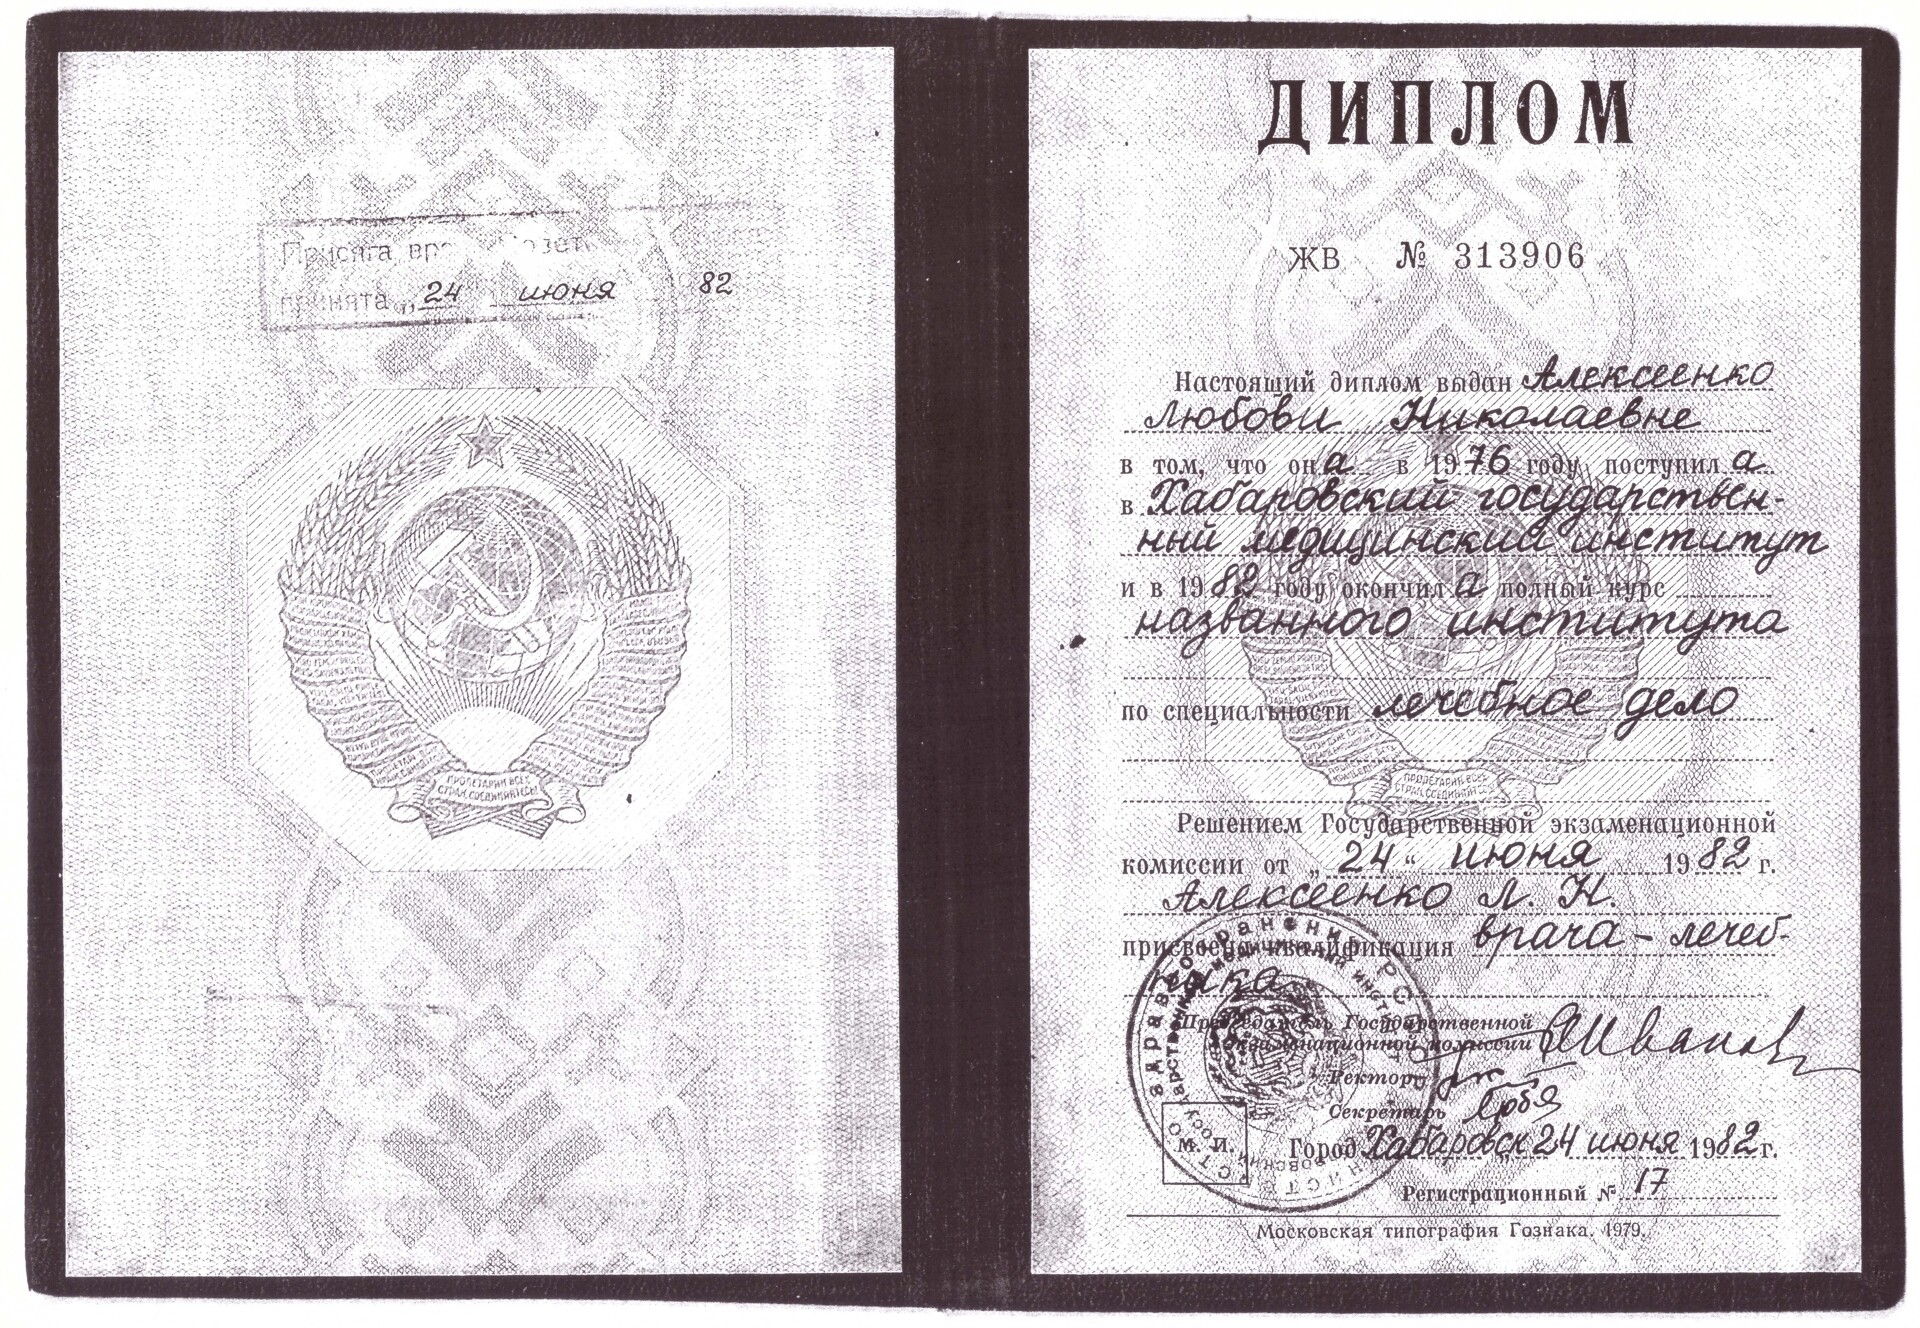 Присяга
принята „24 июня 82
ПРОЛЕТАРИИ ВСЕХ
СТРАН, СОЕДИНЯЙТЕСЬ!
ДИПЛОМ
ЖВ № 313906
Настоящий диплом выдан Алексеенко
Любови Николаевне
в том, что она в 1976 году поступила
в Хабаровский государствен-
ный медицинский институт
и в 1982 году окончила полный курс
названного института
по специальности лечебное дело
ПРОЛЕТАРИИ ВСЕХ
СТРАН, СОЕДИНЯЙТЕСЬ!
Решением Государственной экзаменационной
комиссии от „24“ июня 1982 г.
Алексеенко Л. Н.
присвоена квалификация врача-лечеб-
ника
Председатель Государственной
экзаменационной комиссии
Ректор
Секретарь
М. П.
Город Хабаровск 24 июня 1982 г.
Регистрационный № 17
Московская типография Гознака. 1979.